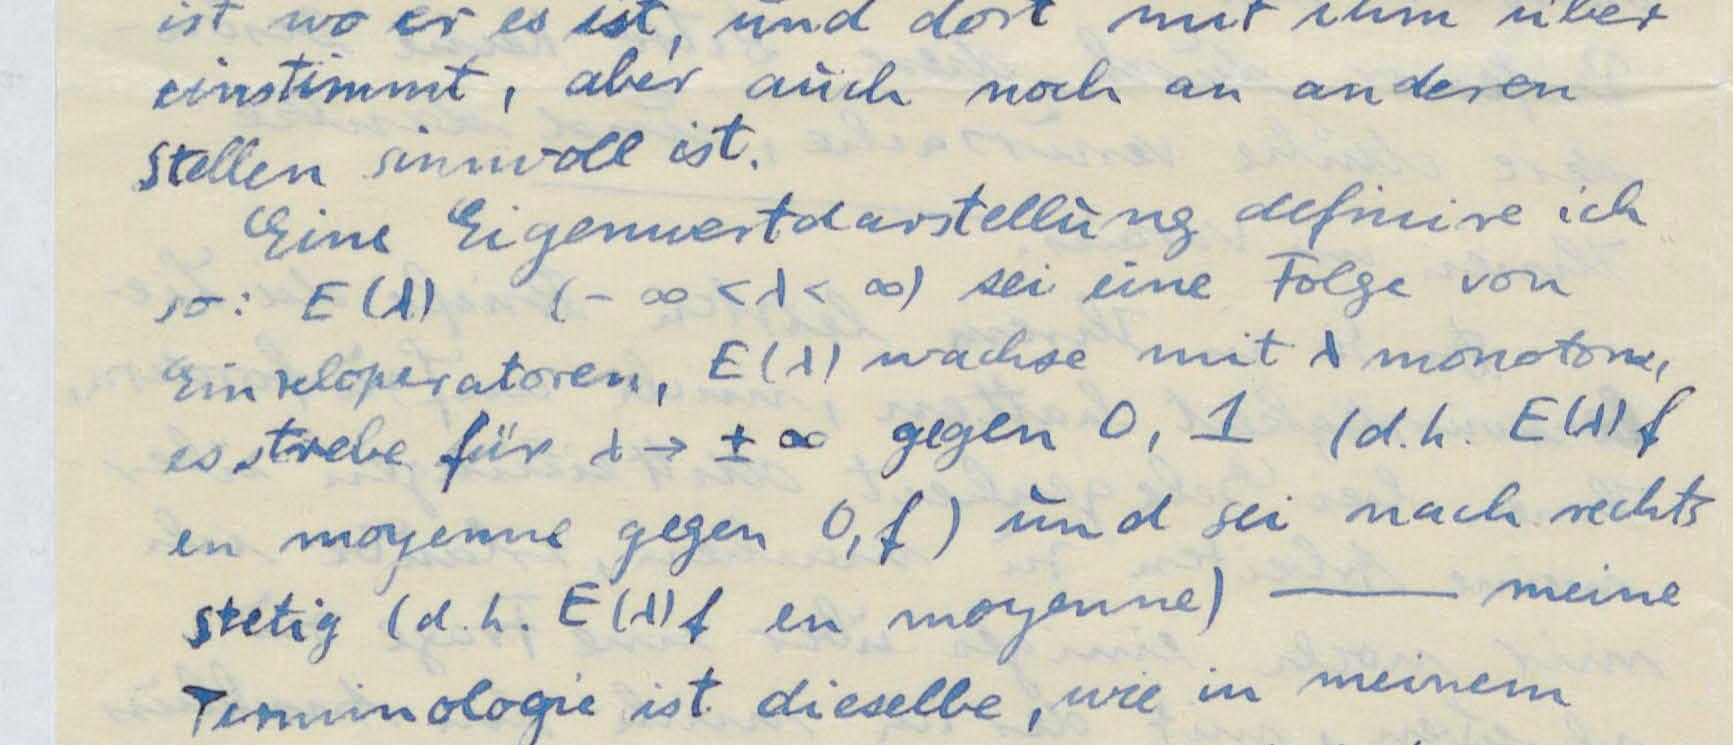 ist wo er es ist, und dort mit ihm über
einstimmt, aber auch noch an anderen
Stellen sinnvoll ist.
Eine Eigenwertdarstellung definire ich
so: E(λ) (- ∞ < λ < ∞) sei eine Folge von
Einzeloperatoren, E(λ) wachse mit λ monoton,
es strebe für λ → ± ∞ gegen 0, 1 (d.h. E(λ)f
en moyenne gegen 0, f) und sei nach rechts
stetig (d.h. E(λ)f en moyenne) —— meine
Terminologie ist dieselbe, wie in meinem